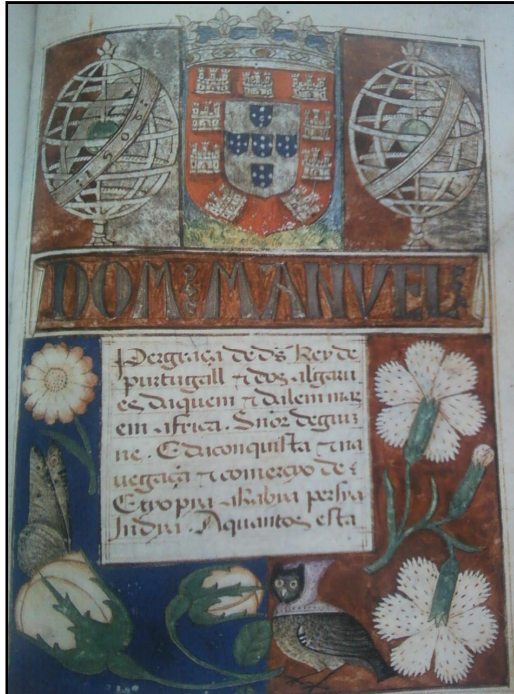 DOM: MANVEL:
Per graça de d's Rey de
purtugall & dos algaru
es daquem & dalem mar
em africa. Snõr deguin
ne. E da conquista & na
uegaça & comerçyo de
Etiopia arabia persya
Jndia. Aquantos esta